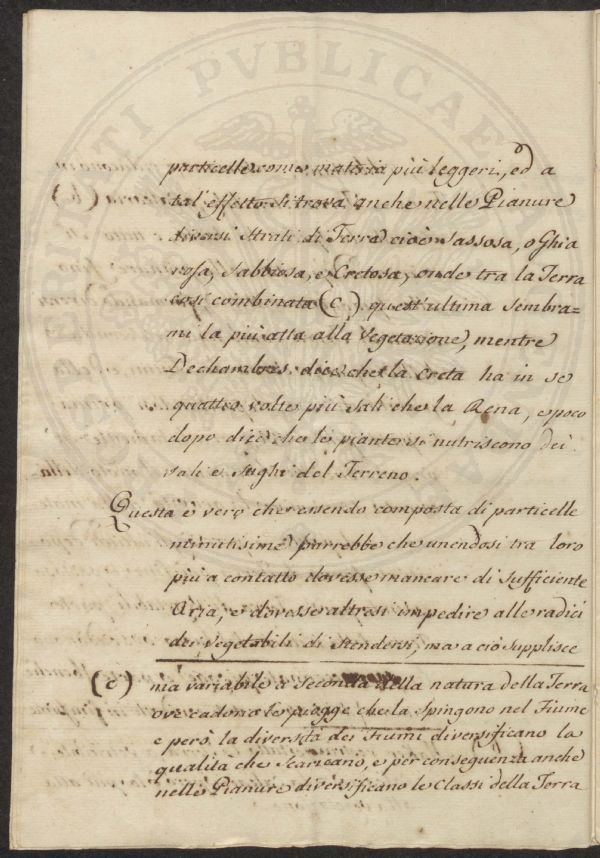 particelle come materia più leggeri, ed a
tal' effetto si trova anche nelle Pianure
diversi strati di Terra cioè Sassosa, o Ghia
rosa, Sabbiosa, e Cretosa, onde tra la Terra
così combinata (C) quest'ultima Sembra=
mi la più atta alla Vegetazione, mentre
Dechambris dice che la Creta ha in se
quattro volte più Sali che la Rena, e poco
dopo dice che le piante si nutriscono dei
sali e Sughi del Terreno.
Questa è vero che essendo composta di particelle
minutissime parrebbe che unendosi tra loro
più a contatto dovesse mancare di Sufficiente
Aria, e dovesse altresì impedire alle radici
dei Vegetabili di Stendersi, ma a ciò Supplisce
(C) nia variabile a Seconda della natura della Terra
ove cadono le piogge che la Spingono nel Fiume
e però la diversità dei Fiumi diversificano la
qualità che Scaricano, e per conseguenza anche
nelle Pianure diversificano le Classi della Terra
PVBLICAE